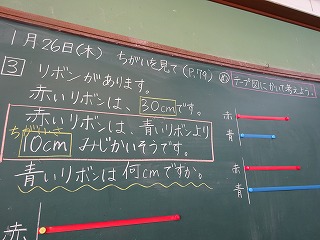 1月26日(木) ちがいを見て(P.79)
㋱ テープ図にかいて考えよう。
3 リボンがあります。
赤いリボンは、30cmです。
赤いリボンは、青いリボンより
ちがいは
10cm みじかいそうです。
青いリボンは何cmですか。
赤
青
赤
青
赤